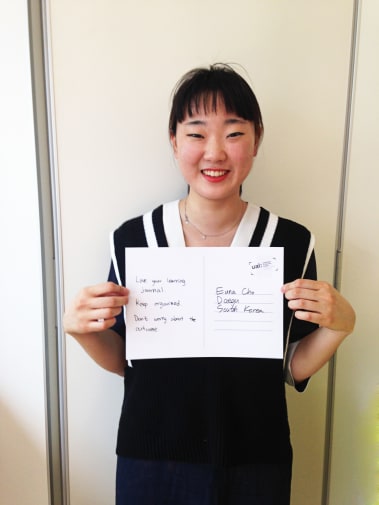 Love your learning
journal
Keep organised
Don't worry about the
outcome
Euna Cho
Daegu
South Korea